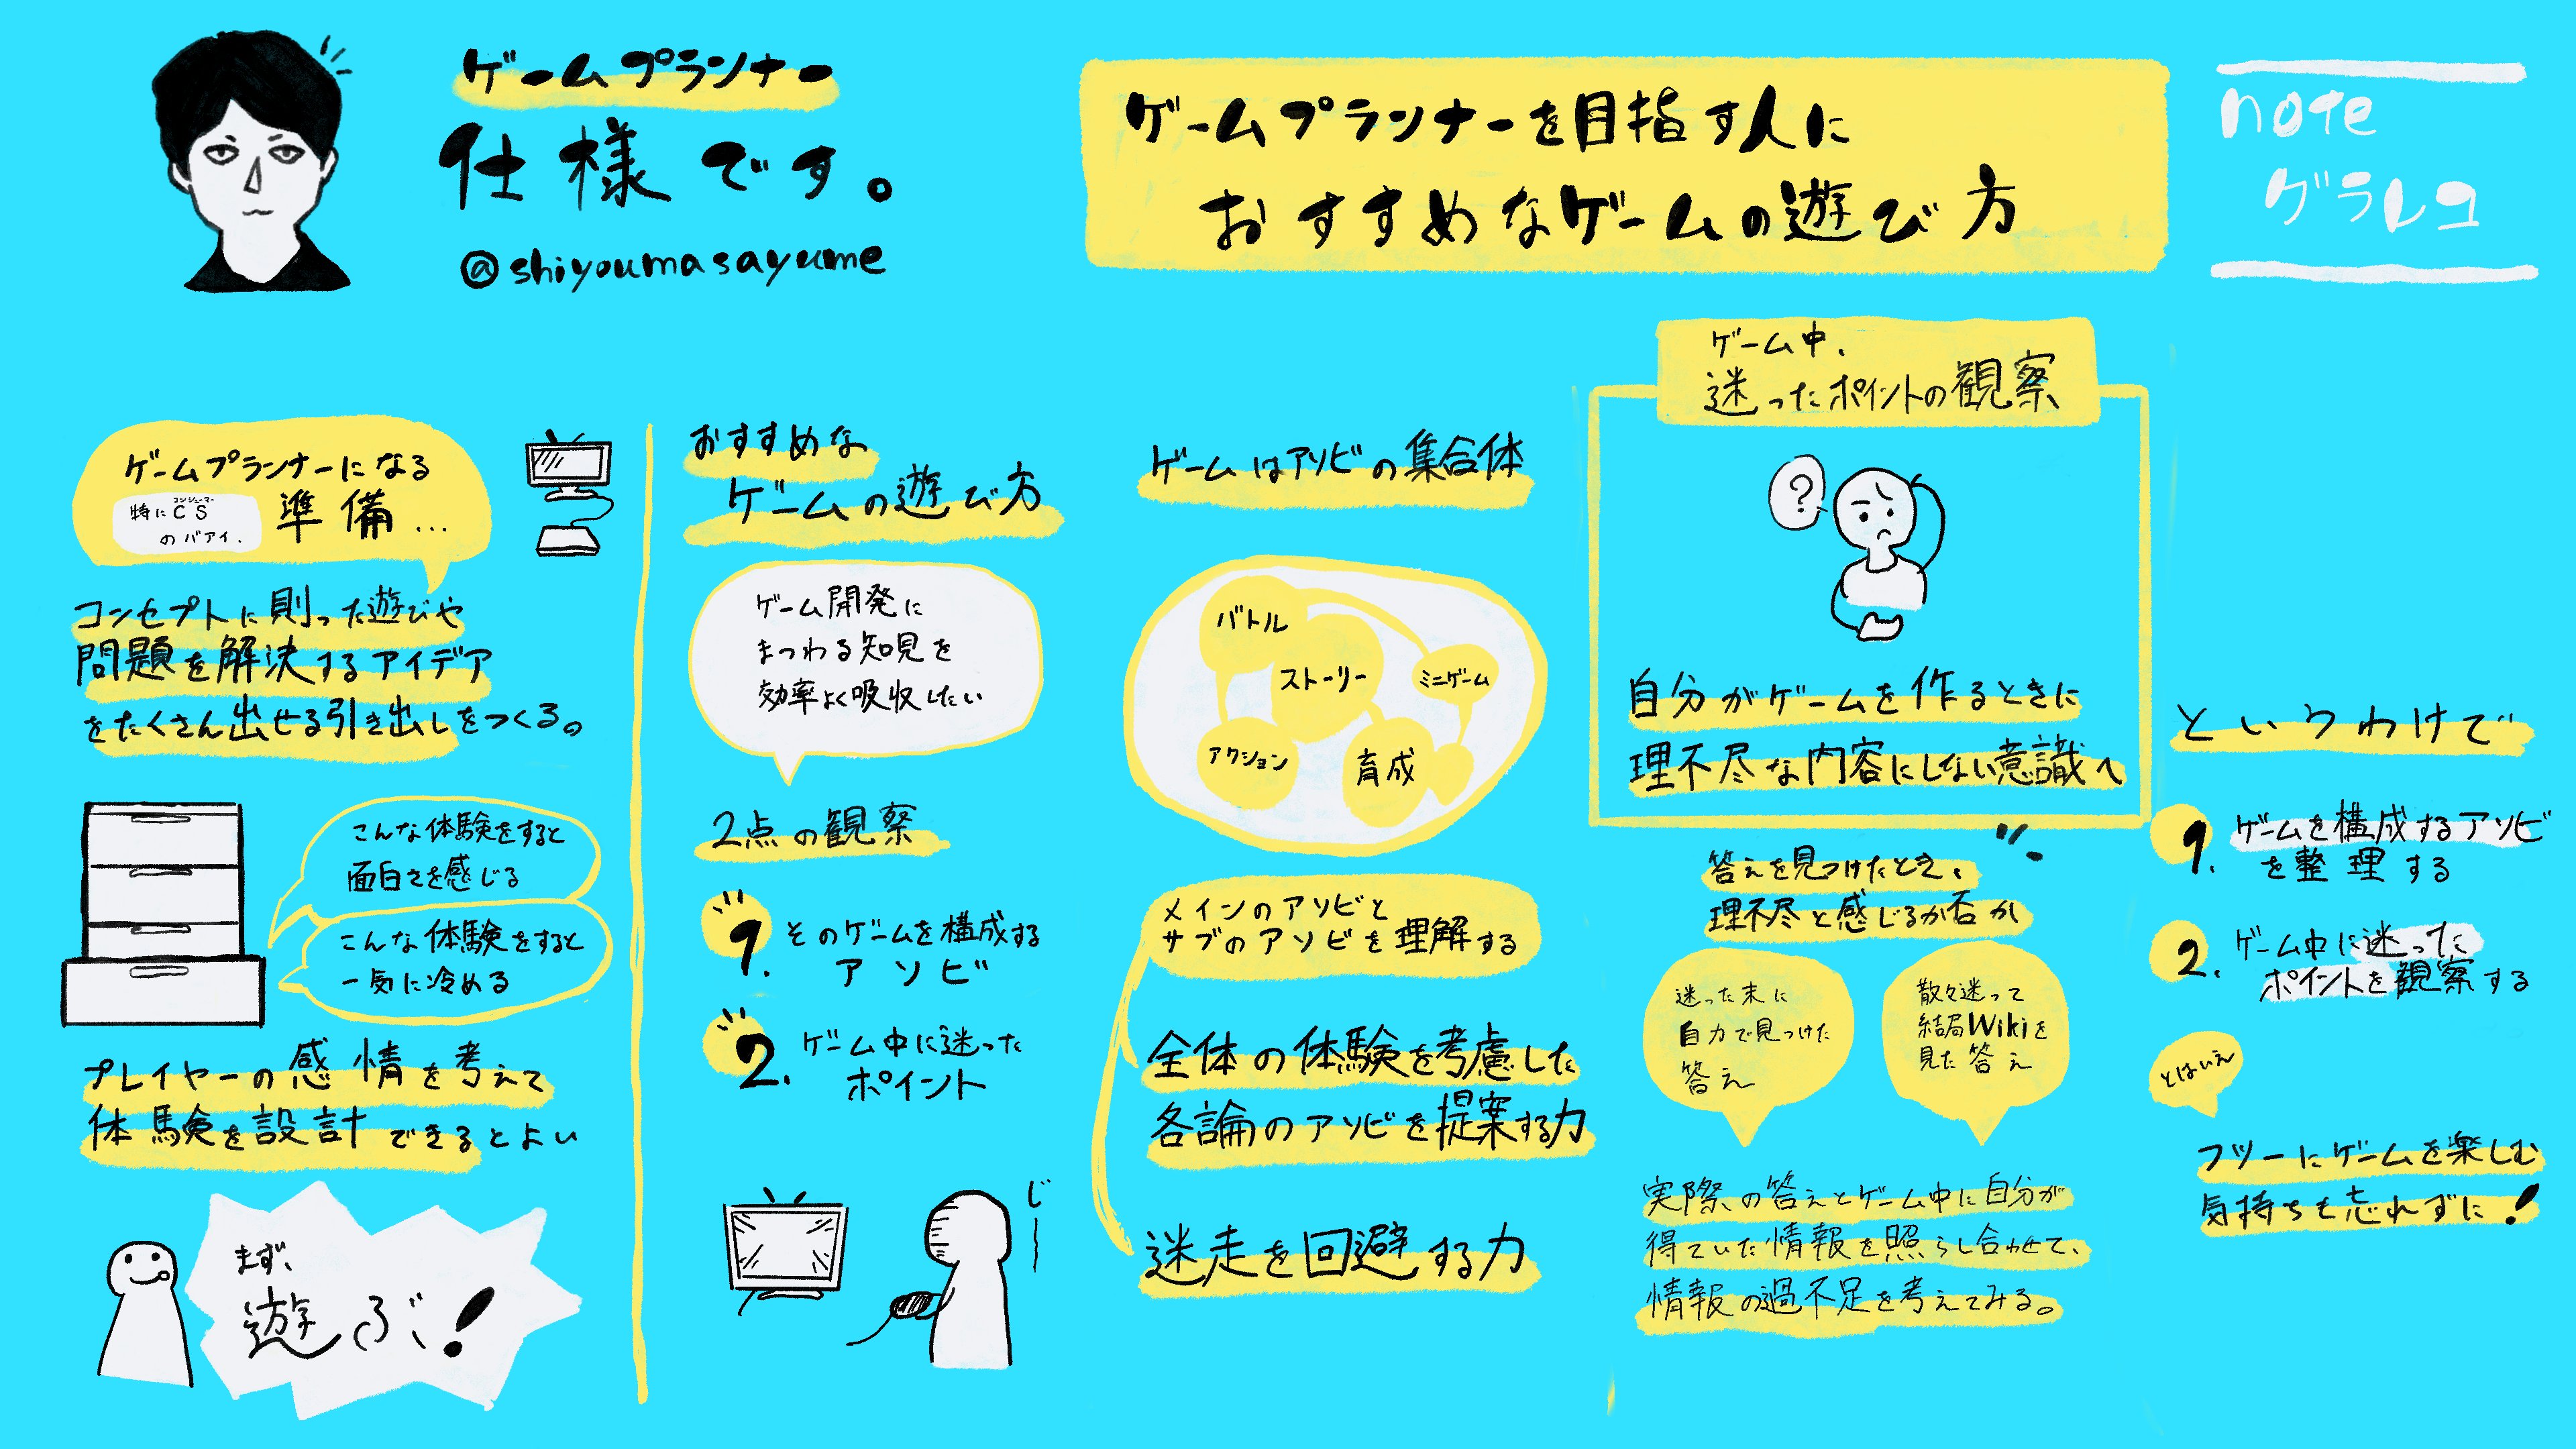 ゲームプランナー
仕様です。
@shiyoumasayume
ゲームプランナーを目指す人に
おすすめなゲームの遊び方
note
グラレコ
ゲームプランナーになる
コンシューマー
特にCS
のバアイ、
準備…
コンセプトに則った遊びや
問題を解決するアイデア
をたくさん出せる引き出しをつくる。
こんな体験をすると
面白さを感じる
こんな体験をすると
一気に冷める
プレイヤーの感情を考えて
体験を設計できるとよい
まず、
遊ぶ!
おすすめな
ゲームの遊び方
ゲーム開発に
まつわる知見を
効率よく吸収したい
2点の観察
1. そのゲームを構成する
アソビ
2. ゲーム中に迷った
ポイント
じー
ゲームはアソビの集合体
バトル
ストーリー
ミニゲーム
アクション
育成
メインのアソビと
サブのアソビを理解する
全体の体験を考慮した
各論のアソビを提案する力
迷走を回避する力
ゲーム中、
迷ったポイントの観察
?
自分がゲームを作るときに
理不尽な内容にしない意識へ
答えを見つけたとき、
理不尽と感じるか否か
迷った末に
自力で見つけた
答え
散々迷って
結局Wikiを
見た答え
実際の答えとゲーム中に自分が
得ていた情報を照らし合わせて、
情報の過不足を考えてみる。
というわけで
1. ゲームを構成するアソビ
を整理する
2. ゲーム中に迷った
ポイントを観察する
とはいえ
フツーにゲームを楽しむ
気持ちも忘れずに!